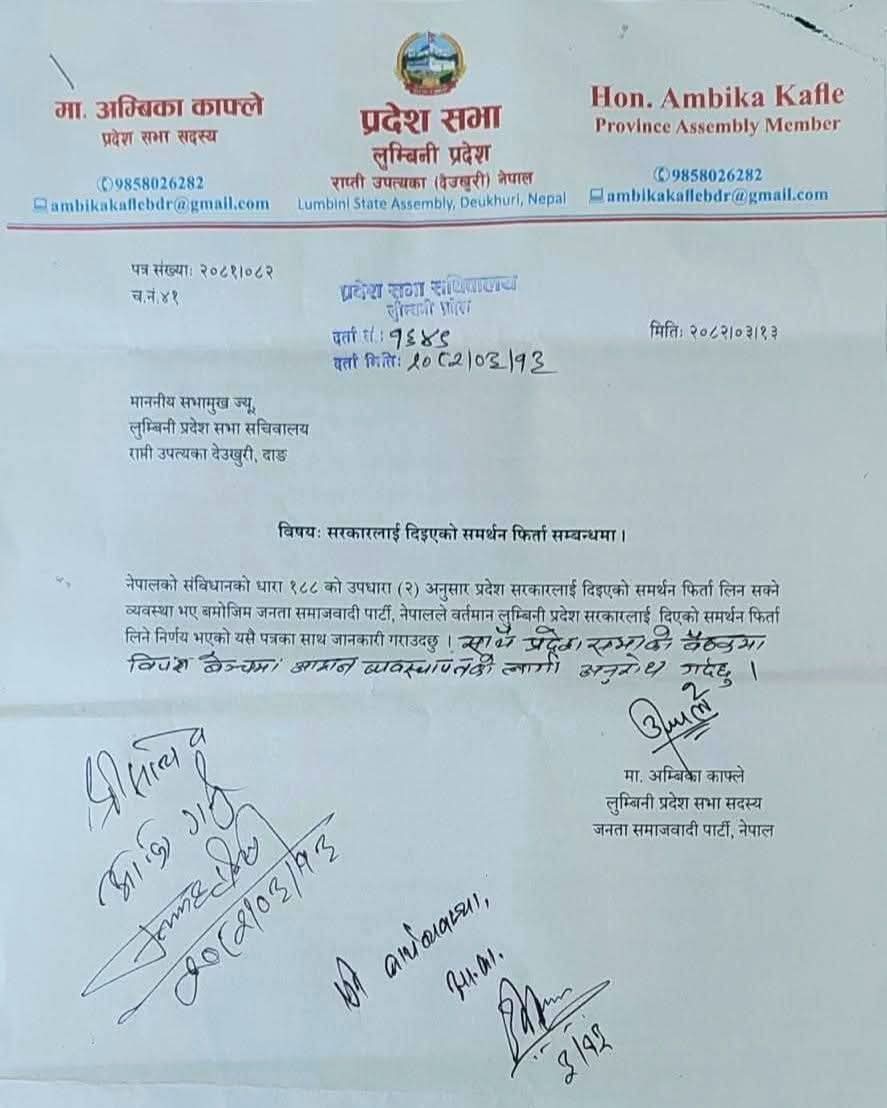 मा. अम्बिका काफ्ले
प्रदेश सभा सदस्य
✆9858026282
ambikakaflebdr@gmail.com
प्रदेश सभा
लुम्बिनी प्रदेश
राप्ती उपत्यका (देउखुरी) नेपाल
Lumbini State Assembly, Deukhuri, Nepal
Hon. Ambika Kafle
Province Assembly Member
✆9858026282
ambikakaflebdr@gmail.com
पत्र संख्याः २०८१।०८२
च.नं.४१
प्रदेश सभा सचिवालय
लुम्बिनी प्रदेश
दर्ता नं.: १६४९
दर्ता मितिः २०८२/०३/१३
मितिः २०८२।०३।१३
माननीय सभामुख ज्यू,
लुम्बिनी प्रदेश सभा सचिवालय
राप्ती उपत्यका देउखुरी, दाङ
विषयः सरकारलाई दिइएको समर्थन फिर्ता सम्बन्धमा।
नेपालको संविधानको धारा १८८ को उपधारा (२) अनुसार प्रदेश सरकारलाई दिइएको समर्थन फिर्ता लिन सक्ने
व्यवस्था भए बमोजिम जनता समाजवादी पार्टी, नेपालले वर्तमान लुम्बिनी प्रदेश सरकारलाई दिएको समर्थन फिर्ता
लिने निर्णय भएको यसै पत्रका साथ जानकारी गराउदछु। साथै प्रदेश सभाको बैठकमा
विपक्ष बेञ्चमा आसन व्यवस्थापनको लागी अनुरोध गर्दछु।
मा. अम्बिका काफ्ले
लुम्बिनी प्रदेश सभा सदस्य
जनता समाजवादी पार्टी, नेपाल
२०८२/०३/१३
३/१३